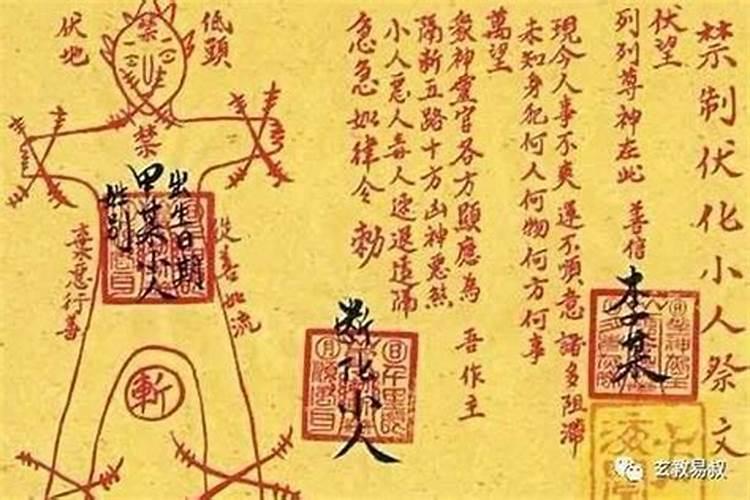 禁制伏化小人祭文
伏望
列列尊神在此 善信
李某
現今人事不爽 運不順意 諸多阻滯
未知身犯何人何物何方何事
萬望
眾神靈官各方顯應為 吾作主
隔断五路十方凶神惡煞
小人惡人毒人速退遠隔
急急如律令 勅
断化小人
低頭
伏地
禁
禁
出生日期
甲某小人
姓別
從善如流
棄惡行善
斬
玄教易叔